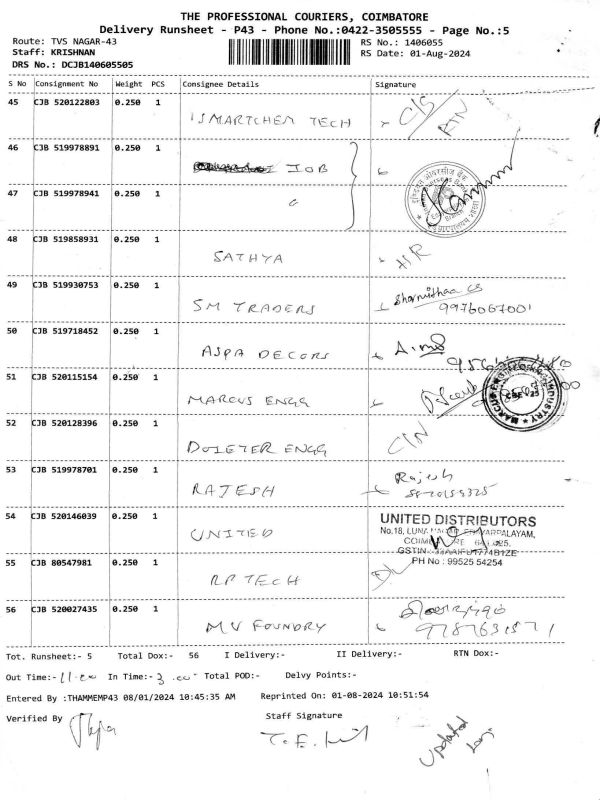 THE PROFESSIONAL COURIERS, COIMBATORE
Delivery Runsheet - P43 - Phone No.:0422-3505555 - Page No.:5
Route: TVS NAGAR-43 RS No.: 1406055
Staff: KRISHNAN RS Date: 01-Aug-2024
DRS No.: DCJB140605505
S No Consignment No Weight PCS Consignee Details Signature
45 CJB 520122803 0.250 1 ISMARTCHEM TECH C/S RTN
46 CJB 519978891 0.250 1 IOB
47 CJB 519978941 0.250 1
48 CJB 519858931 0.250 1 SATHYA
49 CJB 519930753 0.250 1 SM TRADERS 9976067001
50 CJB 519718452 0.250 1 ASPA DECORS
51 CJB 520115154 0.250 1 MARCUS ENGG
MARCUS INDUSTRY
52 CJB 520128396 0.250 1 DOIETER ENGG C/N
53 CJB 519978701 0.250 1 RAJESH Rajesh
54 CJB 520146039 0.250 1 UNITED UNITED DISTRIBUTORS
PH No : 99525 54254
55 CJB 80547981 0.250 1 RP TECH DL
56 CJB 520027435 0.250 1 MV FOUNDRY
Tot. Runsheet:- 5 Total Dox:- 56 I Delivery:- II Delivery:- RTN Dox:-
Out Time:- 11.00 In Time:- 3.00 Total POD:- Delvy Points:-
Entered By :THAMMEMP43 08/01/2024 10:45:35 AM Reprinted On: 01-08-2024 10:51:54
Verified By Staff Signature
Updated